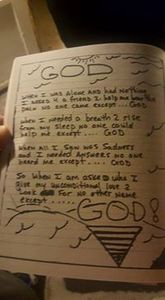 GOD
When I was alone and had nothing
I needed a friend 2 help me bear the
pain no one came except.... GOD
When I needed a breath 2 rise
from my sleep no one could
help me except.... GOD
When all I saw was sadness
and I needed answers no one
heard me except.... GOD
So when I am asked who I
give my unconditional love 2
look for no other name
except .....
GOD!